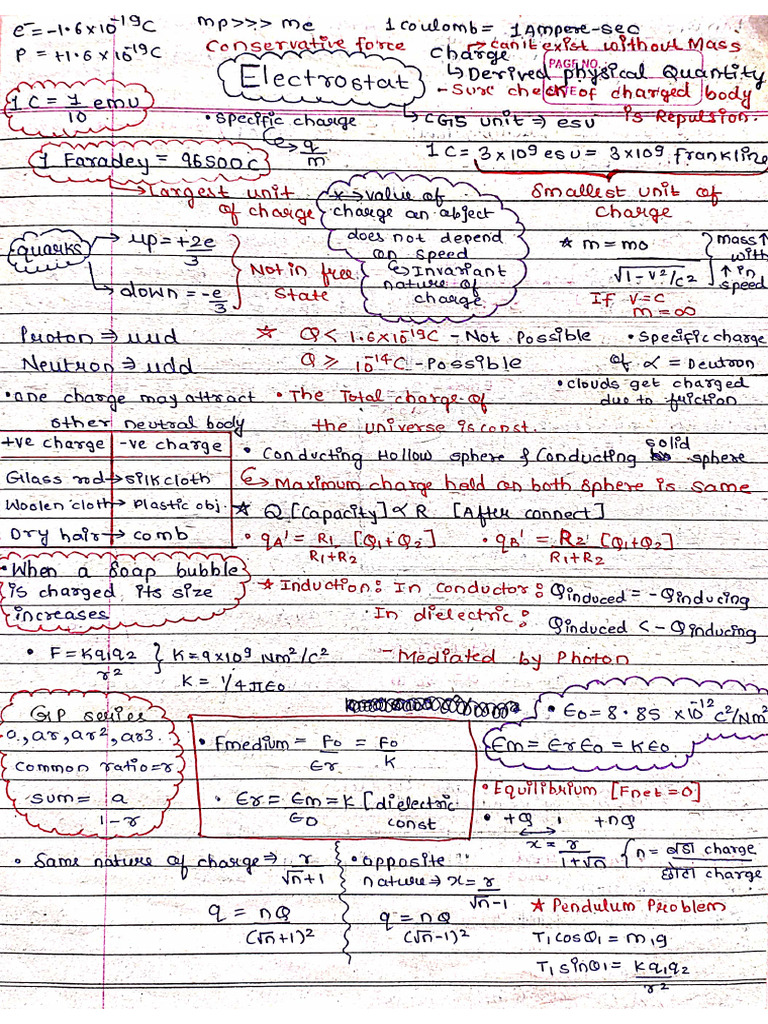 e⁻=-1.6×10⁻¹⁹C mp>>> me 1 Coulomb= 1 Ampere-sec
P = +1.6×10⁻¹⁹C Conservative force Charge → can't exist without Mass
PAGE NO.
Electrostat ↳ Derived physical Quantity
1C = 1/10 emu - Sure check of charged body is Repulsion.
• Specific charge ↳ q/m → CGS unit ⇒ esu
1 Faradey = 96500C 1C= 3×10⁹ esu = 3×10⁹ frankline
→ Largest unit of charge
Smallest unit of charge
* → value of charge an object does not depend on speed
↳ Invariant nature of charge
quarks → up=+2e/3
→ down=-e/3
Not in free state
* m = mo/√1-v²/c² mass↑ with ↑ in speed
If v=c
m=∞
Proton ⇒ uud ☆ Q< 1.6×10⁻¹⁹C - Not Possible • Specific charge
Neutron ⇒ udd Q ⩾ 10⁻¹⁴C - Possible of α = Deutron
• one charge may attract other neutral body
• The Total charge of the universe is const.
• Clouds get charged due to friction
+ve charge -ve charge
Glass rod → silk cloth
Woolen cloth → Plastic obj.
Dry hair → comb
• Conducting Hollow sphere & Conducting solid sphere
↳ Maximum charge hold on both sphere is same
★ Q [Capacity] ∝ R [After connect]
• qA' = R1/R1+R2 [Q1+Q2] • qB' = R2/R1+R2 [Q1+Q2]
• When a Soap bubble is charged its size increases
★ Induction: In conductor: Qinduced = -Qinducing
• In dielectric: Qinduced < - Qinducing
• F = Kq1q2/r² } K=9×10⁹ Nm²/C² - Mediated by Photon
K = 1/4πε0
GP series
a, ar, ar², ar3.
common ratio=r
sum= a/1-r
• Fmedium = F0/εr = F0/k
• εr = εm/ε0 = K [dielectric const
• ε0 = 8.85 ×10⁻¹²C²/Nm²
εm= εrε0 = kε0.
• Equilibrium [Fnet=0]
• +Q +nQ
x = r/1+√n { n = बड़ा charge/छोटा charge
• Same nature of charge ⇒ r/√n+1
q = nQ/(√n+1)²
• opposite " nature ⇒ x = r/√n-1
q = nQ/(√n-1)²
★ Pendulum Problem
T1cosθ1 = m1g
T1sinθ1 = kq1q2/r²